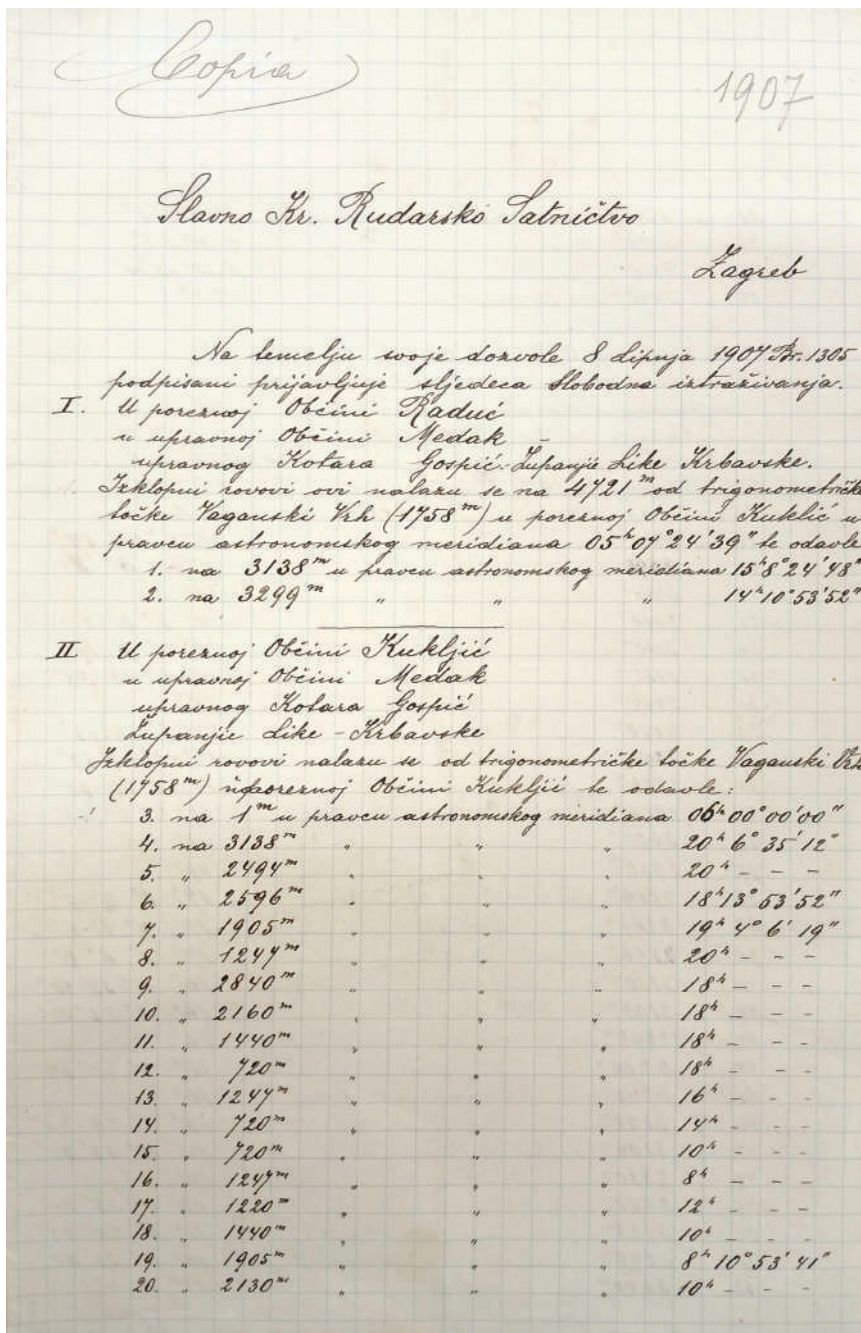 Copia
1907
Slavno Kr. Rudarsko Satničtvo
Zagreb
Na temelju svoje dozvole 8 lipnja 1907 Br. 1305
podpisani prijavljuje sljedeca slobodna iztraživanja.
I. U poreznoj Občini Raduć
u upravnoj Občini Medak -
upravnog Kotara Gospić. Županije Like Krbavske.
Izklopni rovovi ovi nalazu se na 4721 m od trigonometričke
točke Vaganski Vrh (1758 m) u poreznoj Občini Kuklić u
pravcu astronomskog meridiana 05h 07° 24' 39" te odavle
1. na 3138 m u pravcu astronomskog meridiana 15h 8° 24' 48"
2. na 3299 m " " " 14h 10° 53' 52"
II U poreznoj Občini Kukljić
u upravnoj Občini Medak
upravnog Kotara Gospić
Županije Like - Krbavske
Izklopni rovovi nalazu se od trigonometričke točke Vaganski Vrh
(1758 m) u poreznoj Občini Kukljić te odavle:
3. na 1 m u pravcu astronomskog meridiana 06h 00° 00' 00"
4. na 3138 m " " " 20h 6° 35' 12"
5. " 2494 m " " " 20h - - -
6. " 2596 m " " " 18h 13° 53' 52"
7. " 1905 m " " " 19h 4° 6' 19"
8. " 1247 m " " " 20h - - -
9. " 2840 m " " " 18h - - -
10. " 2160 m " " " 18h - - -
11. " 1440 m " " " 18h - - -
12. " 720 m " " " 18h - - -
13. " 1247 m " " " 16h - - -
14. " 720 m " " " 14h - - -
15. " 720 m " " " 10h - - -
16. " 1247 m " " " 8h - - -
17. " 1220 m " " " 12h - - -
18. " 1440 m " " " 10h - - -
19. " 1905 m " " " 8h 10° 53' 41"
20. " 2130 m " " " 10h - - -